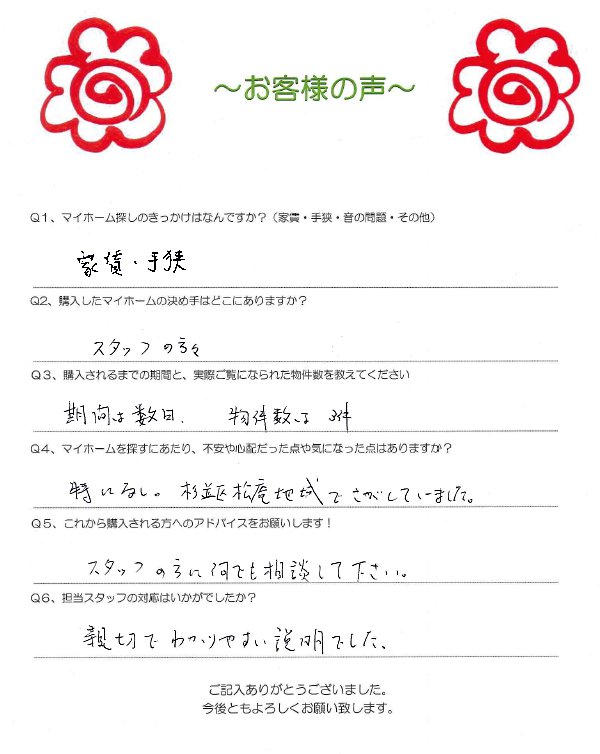 ～お客様の声～
Q1、マイホーム探しのきっかけはなんですか？（家賃・手狭・音の問題・その他）
家賃・手狭
Q2、購入したマイホームの決め手はどこにありますか？
スタッフの方々
Q3、購入されるまでの期間と、実際ご覧になられた物件数を教えてください
期間は数日、 物件数は 3件
Q4、マイホームを探すにあたり、不安や心配だった点や気になった点はありますか？
特になし。杉並区松庵地域でさがしていました。
Q5、これから購入される方へのアドバイスをお願いします！
スタッフの方に何でも相談して下さい。
Q6、担当スタッフの対応はいかがでしたか？
親切でわかりやすい説明でした、
ご記入ありがとうございました。
今後ともよろしくお願い致します。